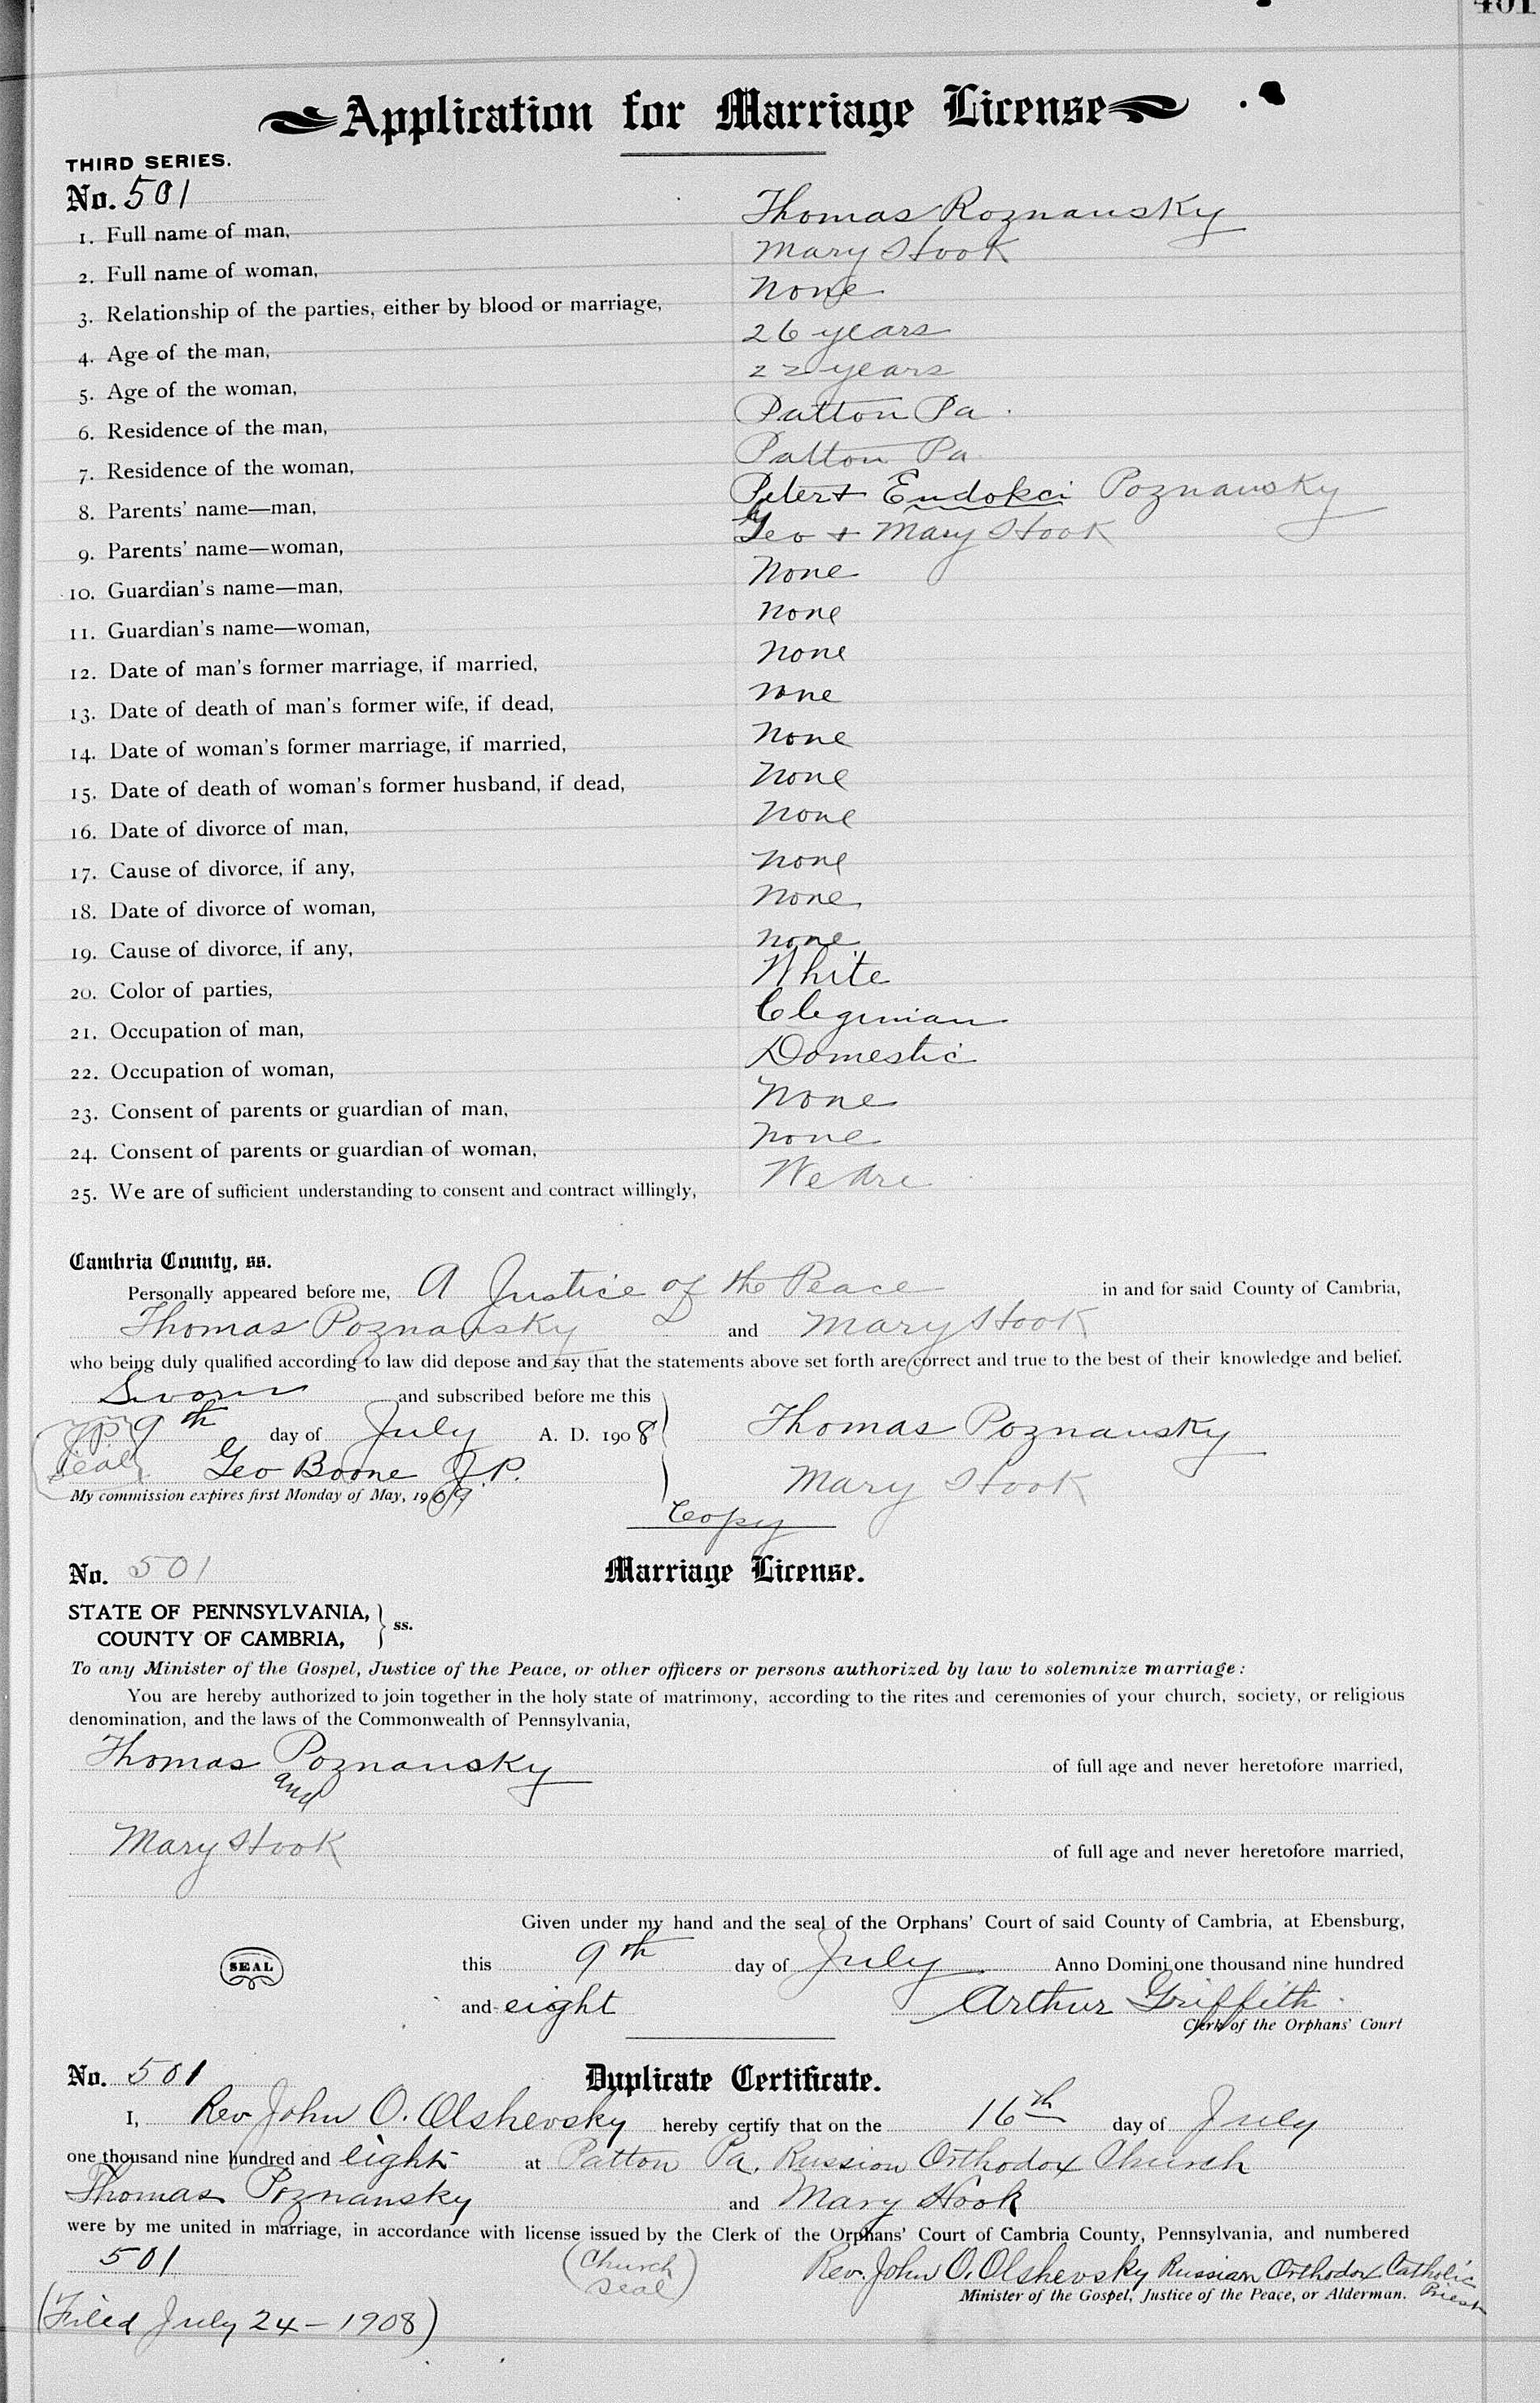 401
Application for Marriage License
THIRD SERIES.
No. 501
1. Full name of man, Thomas Roznansky
2. Full name of woman, Mary Hook
3. Relationship of the parties, either by blood or marriage, None
4. Age of the man, 26 years
5. Age of the woman, 22 years
6. Residence of the man, Patton Pa.
7. Residence of the woman, Patton Pa.
8. Parents' name—man, Peter + Endokci Poznansky
9. Parents' name—woman, Geo + Mary Hook
10. Guardian's name—man, None
11. Guardian's name—woman, None
12. Date of man's former marriage, if married, None
13. Date of death of man's former wife, if dead, None
14. Date of woman's former marriage, if married, None
15. Date of death of woman's former husband, if dead, None
16. Date of divorce of man, None
17. Cause of divorce, if any, None
18. Date of divorce of woman, None
19. Cause of divorce, if any, None
20. Color of parties, White
21. Occupation of man, Clegiman
22. Occupation of woman, Domestic
23. Consent of parents or guardian of man, None
24. Consent of parents or guardian of woman, None
25. We are of sufficient understanding to consent and contract willingly, We Are
Cambria County, ss.
Personally appeared before me, A Justice of the Peace in and for said County of Cambria,
Thomas Poznansky and Mary Hook
who being duly qualified according to law did depose and say that the statements above set forth are correct and true to the best of their knowledge and belief.
Sworn and subscribed before me this
9th day of July A. D. 1908 Thomas Poznansky
(J P Seal) Geo Boone J.P. Mary Hook
My commission expires first Monday of May, 1909
Copy
No. 501 Marriage License.
STATE OF PENNSYLVANIA,
COUNTY OF CAMBRIA, } ss.
To any Minister of the Gospel, Justice of the Peace, or other officers or persons authorized by law to solemnize marriage:
You are hereby authorized to join together in the holy state of matrimony, according to the rites and ceremonies of your church, society, or religious
denomination, and the laws of the Commonwealth of Pennsylvania,
Thomas Poznansky of full age and never heretofore married,
and
Mary Hook of full age and never heretofore married,
Given under my hand and the seal of the Orphans' Court of said County of Cambria, at Ebensburg,
SEAL this 9th day of July Anno Domini one thousand nine hundred
and eight Arthur Griffith
Clerk of the Orphans' Court
No. 501 Duplicate Certificate.
I, Rev John O. Olshevsky hereby certify that on the 16th day of July
one thousand nine hundred and eight at Patton Pa. Russion Orthodox Church
Thomas Poznansky and Mary Hook
were by me united in marriage, in accordance with license issued by the Clerk of the Orphans' Court of Cambria County, Pennsylvania, and numbered
501 (Church Seal) Rev. John O. Olshevsky Russian Orthodox Catholic Priest
Minister of the Gospel, Justice of the Peace, or Alderman.
(Filed July 24 - 1908)